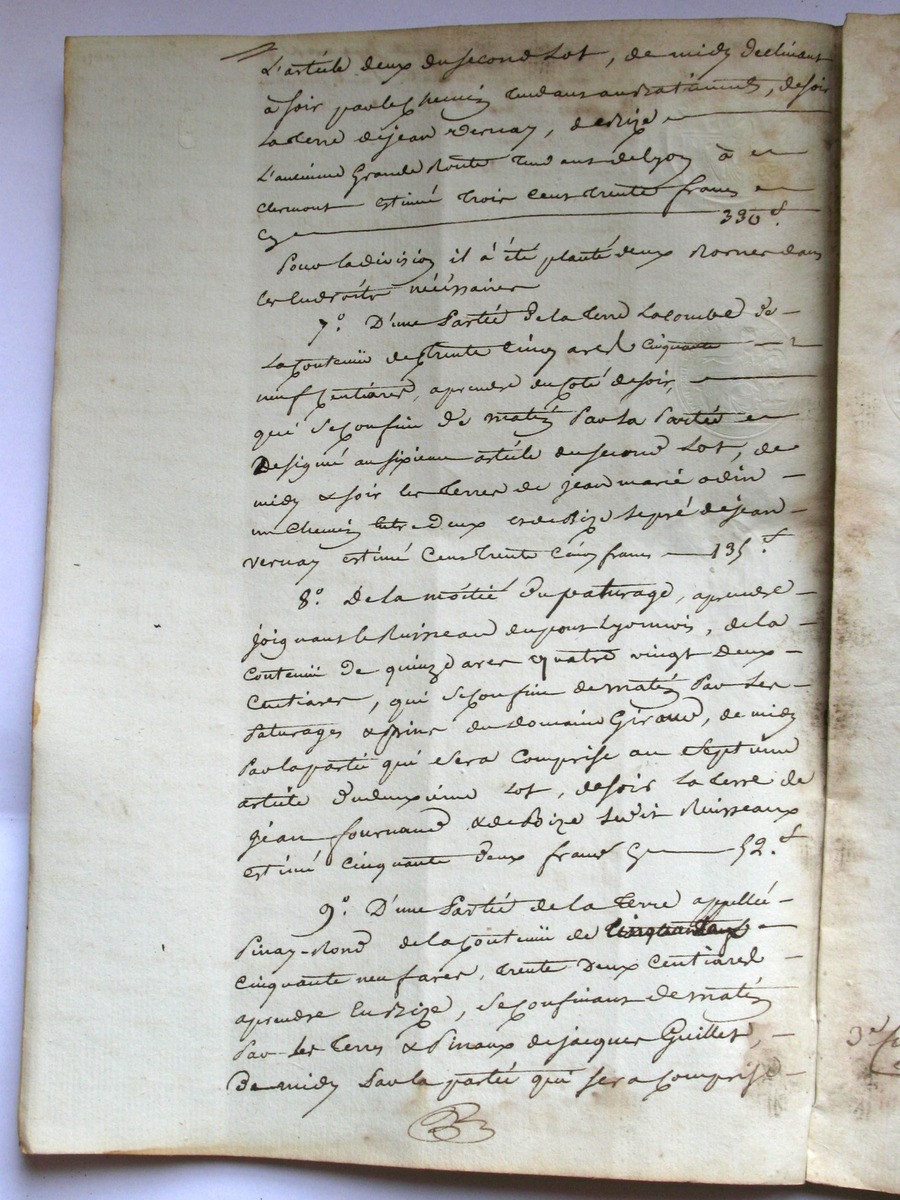 L'article deux du second Lot, de midy declinant
à soir par le chemin tendant aux batiments, de soir
la terre de jean vernay, de Bize
L'ancienne Grande Route tendant de lyon à
clermont estimé trois cent trente francs
cy 330 f.
Pour la division il à été planté deux Bornes dans
les Endroits nécéssaires
7.° D'une Partie de la terre Lacombe de
La Contenüe de trente cinq ares cinquante
neuf Centiares, a prendre du coté de soir,
qui se confine de matin Par la Partie
Designé au sixieme article du second Lot, de
midy & soir les terres de jean marie odin
un chemin entre deux et de Bize le pré de jean
vernay estimé cent trente cinq francs 135 f
8.° De la moitié du paturage, a prendre
joignant le Ruisseau du pont Lyonnois, de la
contenüe de quinze ares quatre vingt deux
Centiares, qui se confine de matin Par les
Paturages & Pins du Domaine Giraud, de midy
Par la partie qui sera comprise au septieme
article du deuxiéme Lot, de soir la terre de
jean fournand & de Bize ledit Ruisseaux
estimé cinquante deux francs cy 52 f
9.° D'une Partie de la terre appellée
Pinay-Rond de la contenüe de
cinquante neuf ares, trente deux Centiares
a prendre en Bize, se confinant de matin
Par les terres & Pinaux de jacques Guillet,
De midy Par la partie qui sera comprise
3e